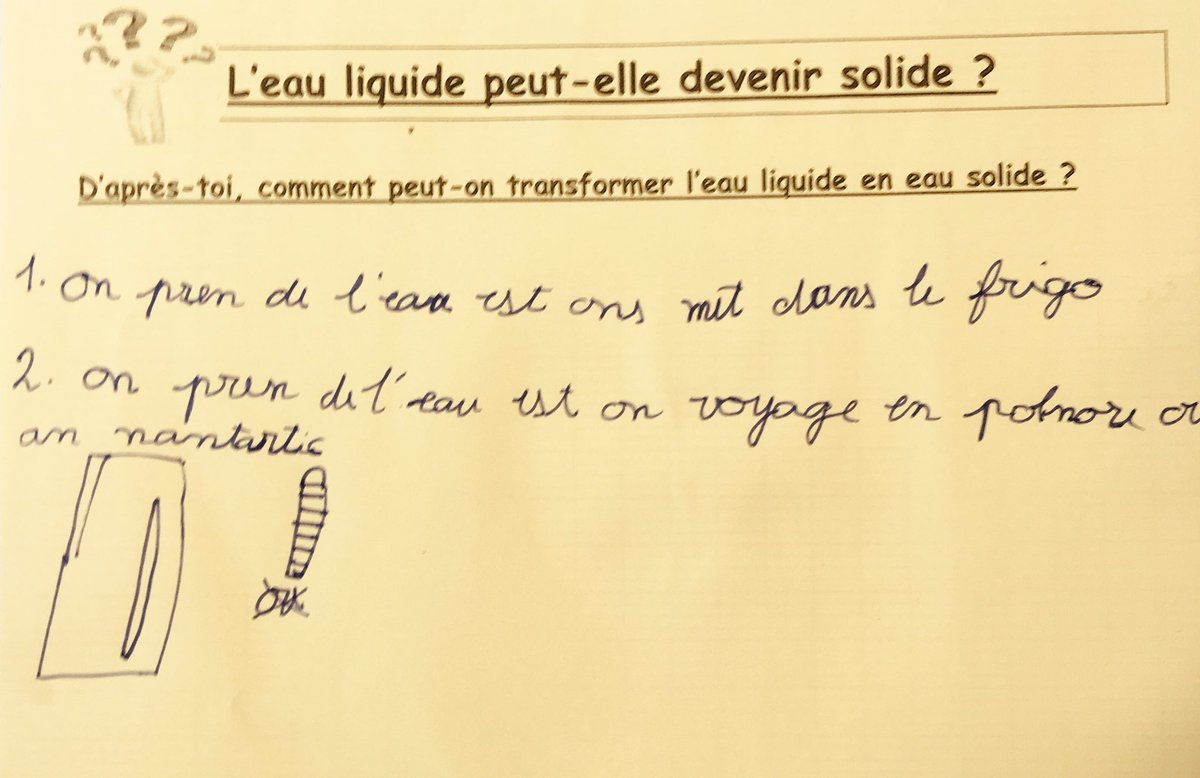 ? ? ? ?
L'eau liquide peut-elle devenir solide ?
D'après-toi, comment peut-on transformer l'eau liquide en eau solide ?
1. on pren de l'eau est ons met dans le frigo
2. on pren de l'eau est on voyage en polnore ou
an nantartic